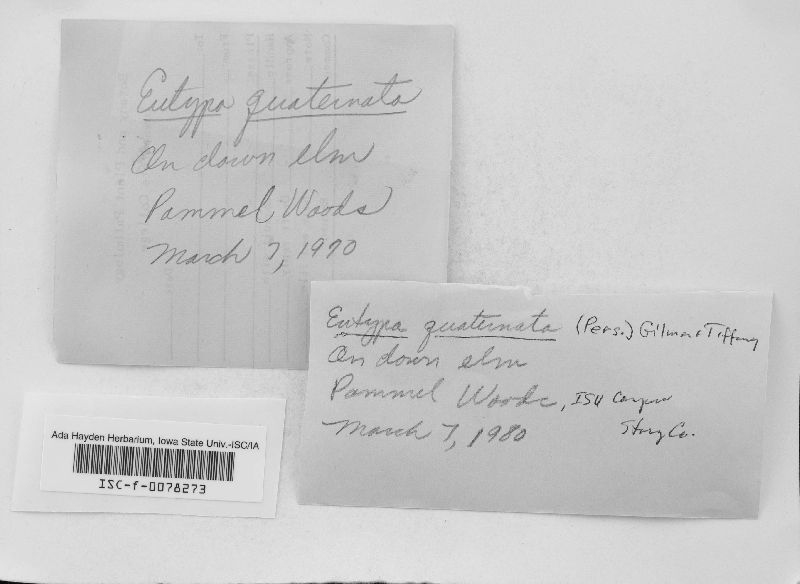 Eutypa quaternata
On down elm
Pammel Woods
March 7, 1970
Eutypa quaternata (Pers.) Gilman & Tiffany
On down elm
Pammel Woods, ISU Campus
March 7, 1980 Story Co.
Ada Hayden Herbarium, Iowa State Univ.-ISC/IA
ISC-f-0078273